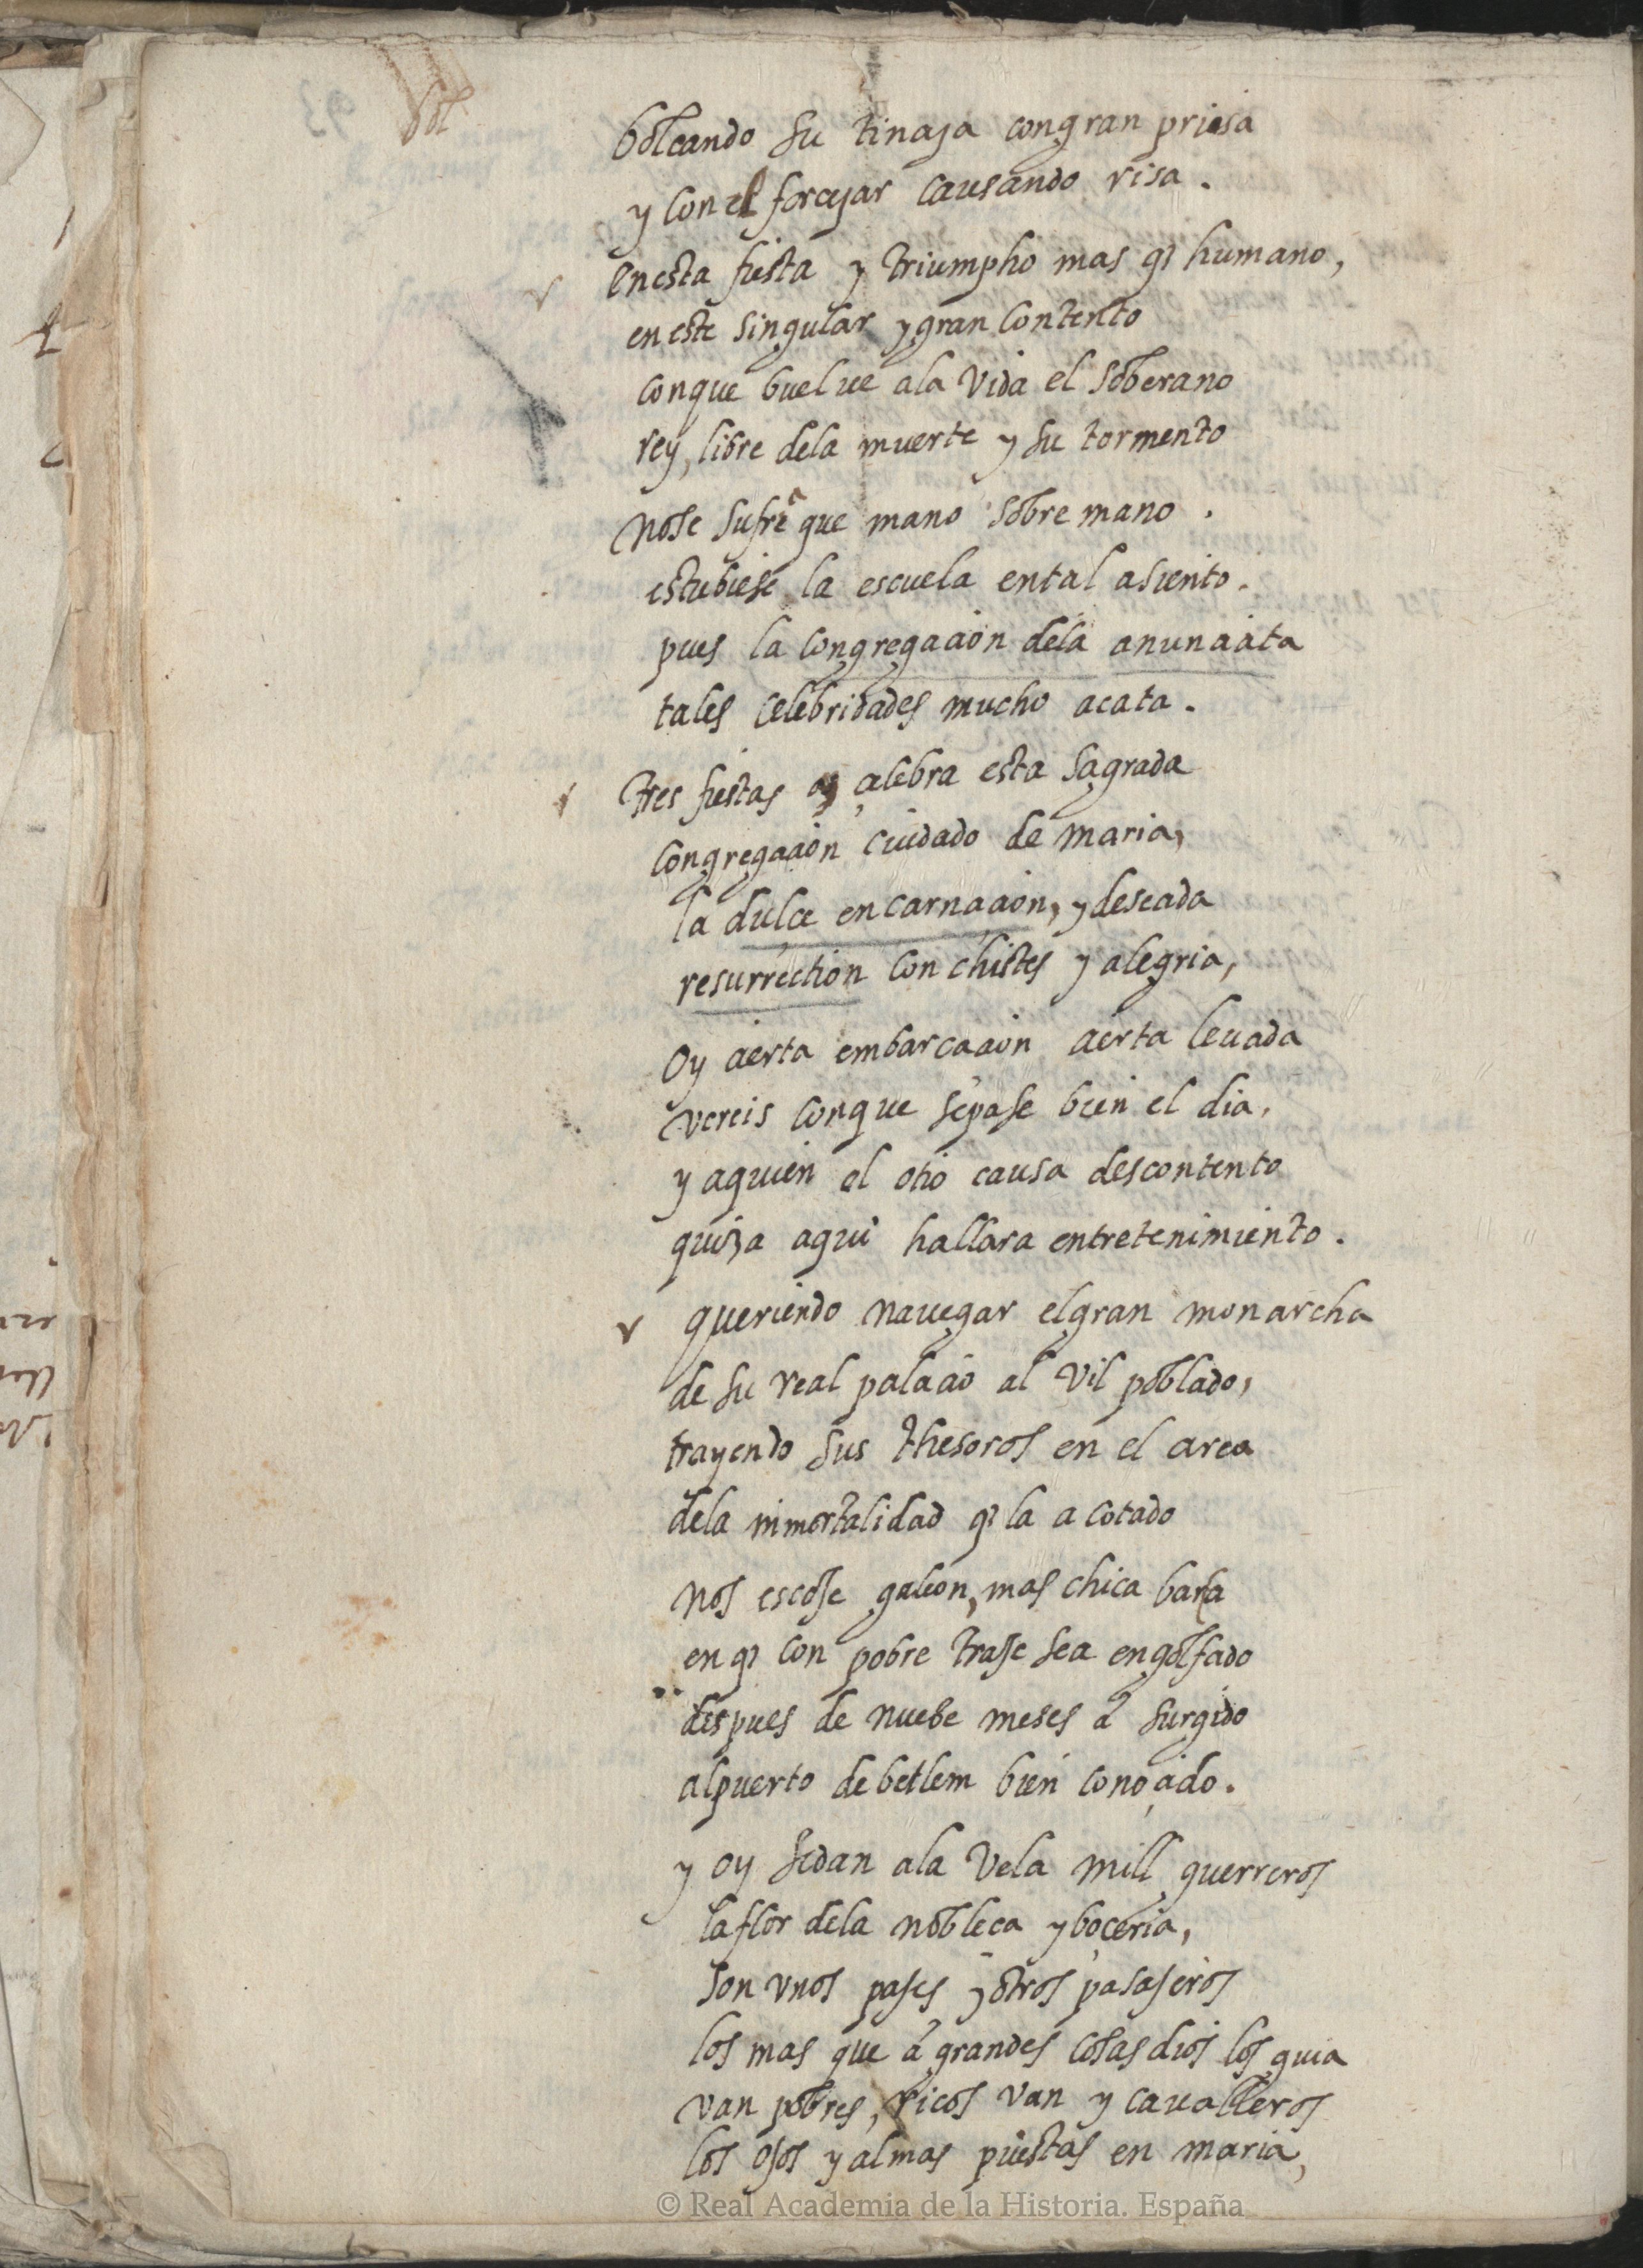 bolteando su tinaja con gran priesa
y con el forcejar causando risa.
En esta fiesta y triumpho mas q humano,
en este singular y gran contento
con que buelue a la vida el soberano
rey, libre dela muerte y su tormento
no se sufre que mano sobre mano.
estubiese la escuela en tal asiento.
pues la congregacion dela anunciata
tales celebridades mucho acata.
Tres fiestas celebra esta sagrada
congregacion cuidado de maria,
la dulce encarnacion, y deseada
resurrection con chistes y alegria,
Oy cierta embarcacion cierta leuada
vereis con que se pase bien el dia,
y a quien el otio causa descontento
quiza aqui hallara entretenimiento.
queriendo nauegar el gran monarcha
de su real palacio al vil poblado,
trayendo sus thesoros en el arca
dela inmortalidad q la a cotado
nos escoje galeon, mas chica barca
en q con pobre traje se a engolfado
despues de nuebe meses á surgido
al puerto de betlem bien conocido.
y oy se dan ala vela mill guerreros
la flor dela nobleca y boceria,
son vnos pajes y otros pasajeros
los mas que á grandes cosas dios los guia
van pobres, ricos van y caualleros
los ojos y almas puestas en maria,
© Real Academia de la Historia. España